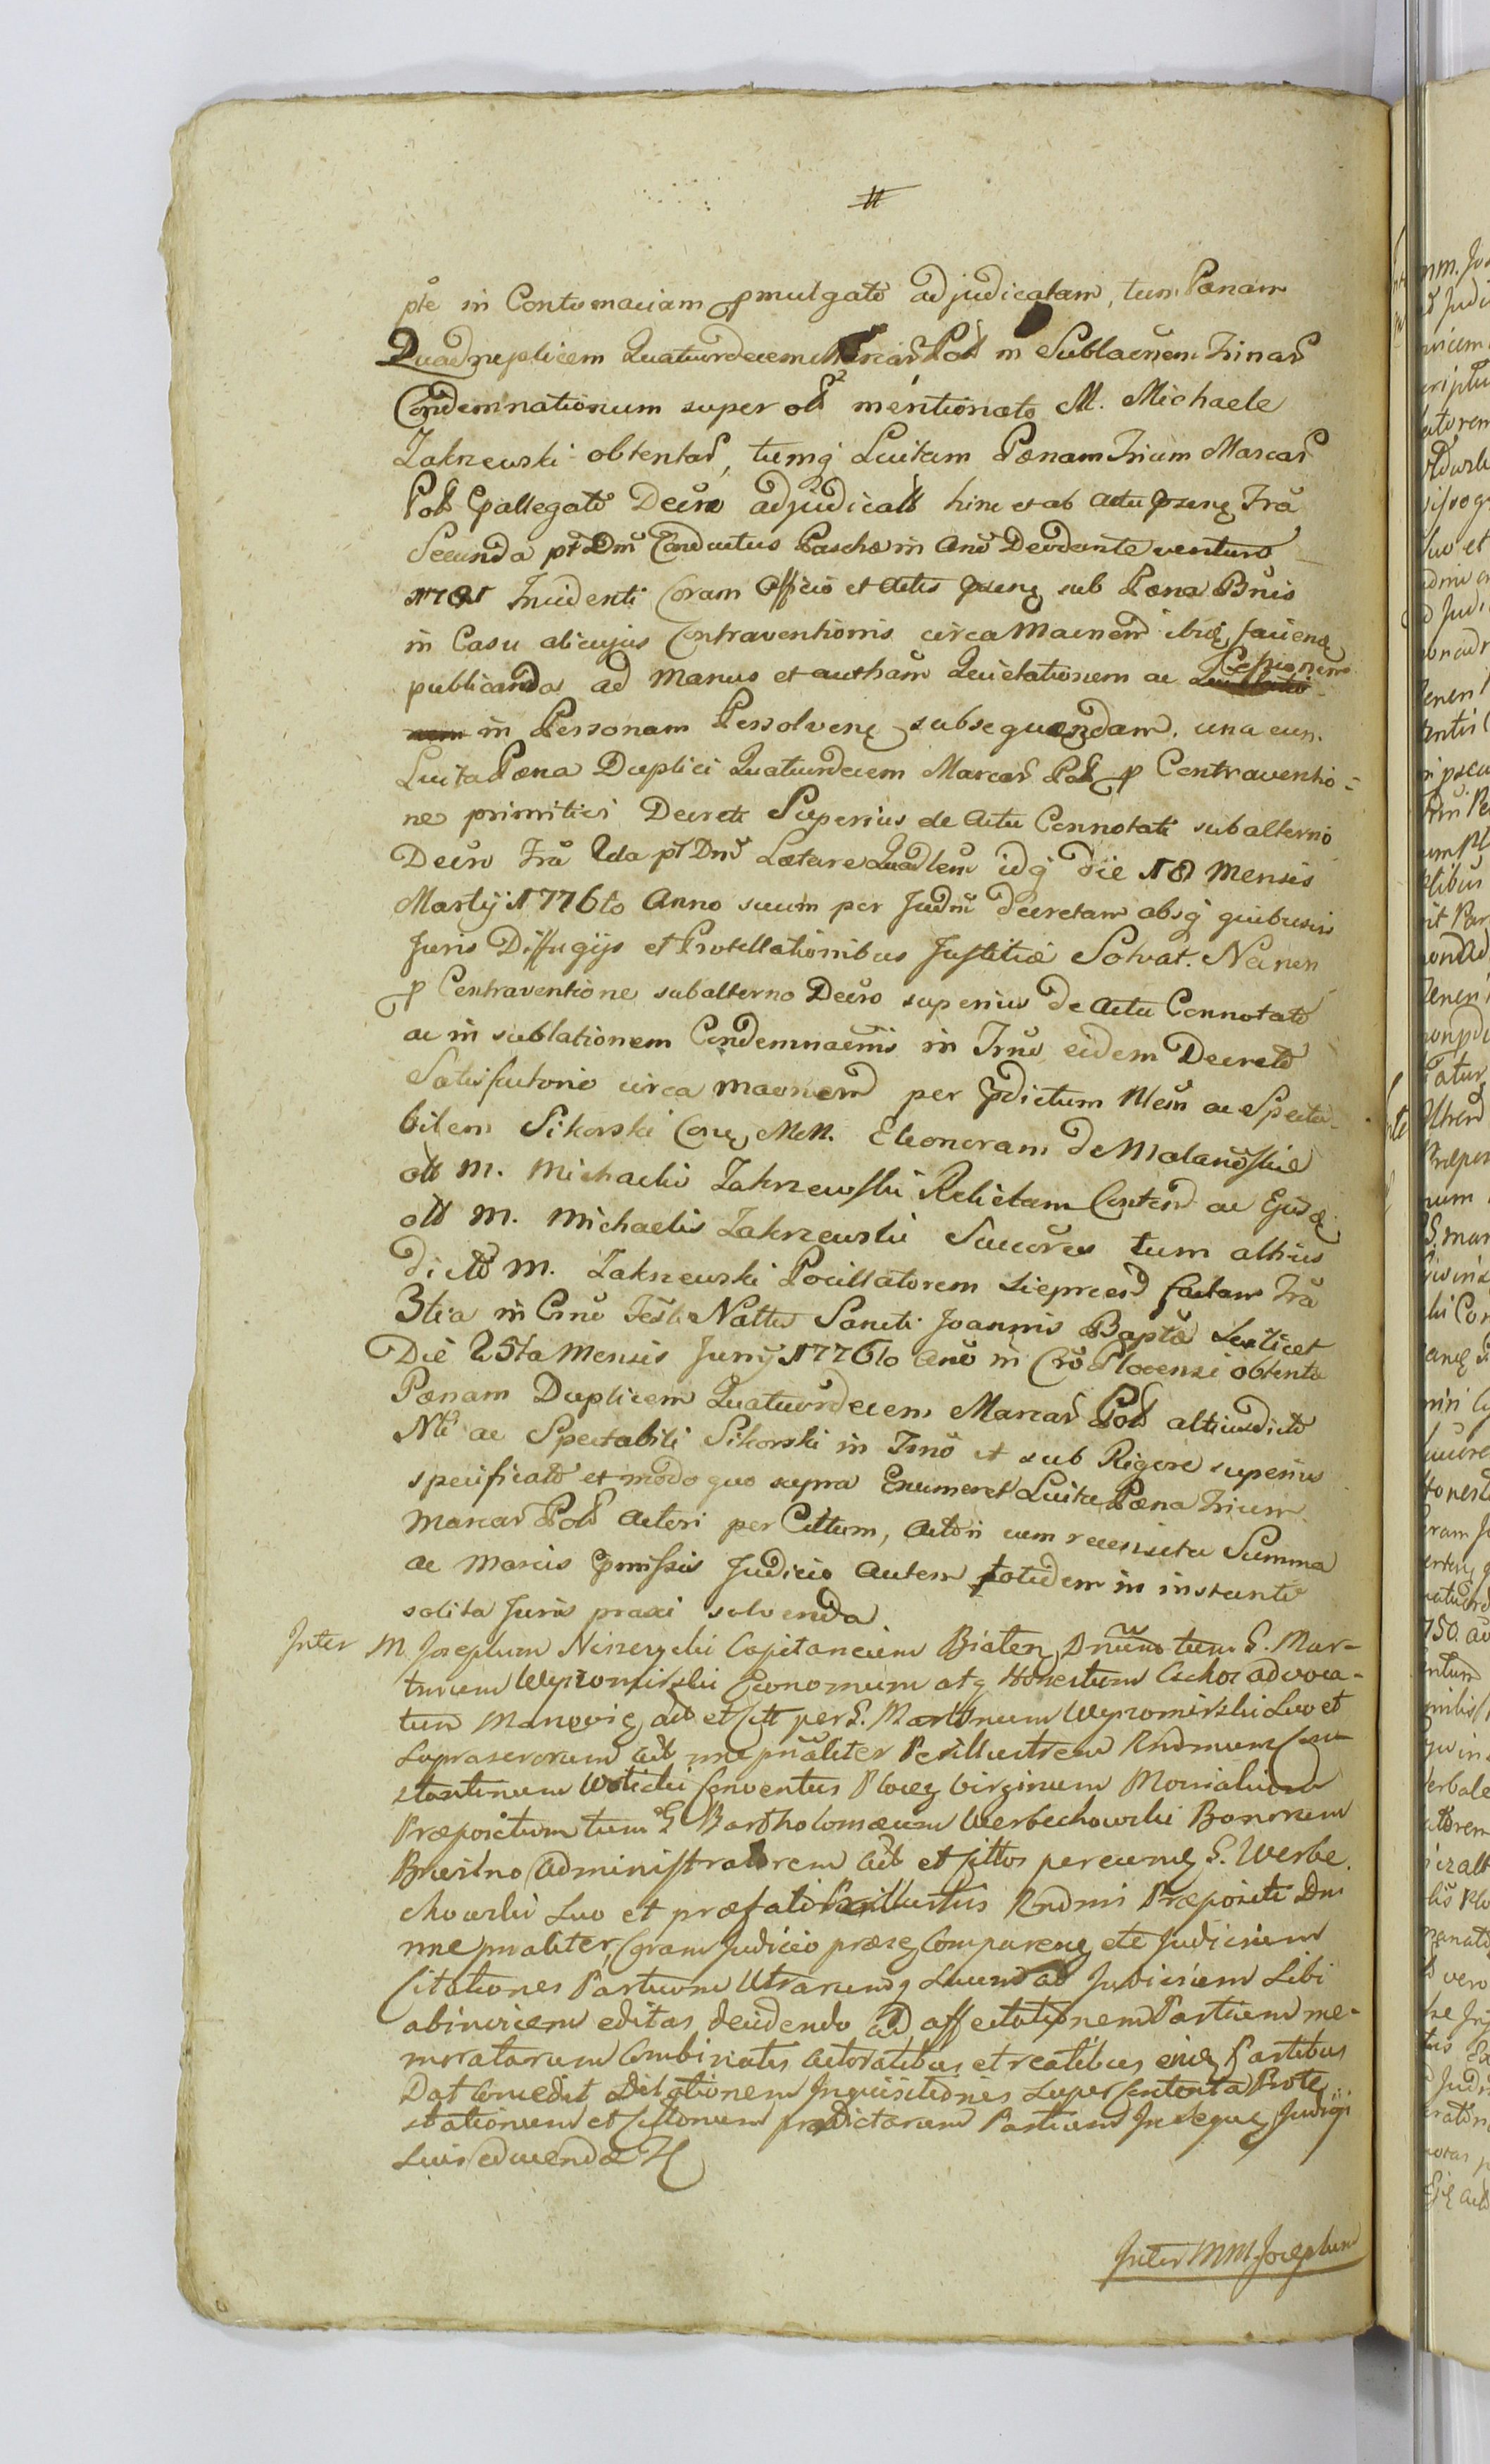 pte in Contumaciam pmulgato adjudicatam, tum Pænam
Quadruplicem Quatuordecem Marcar Pol in Sublaonem Trinar
Condemnationum super ol mentionato M. Michaele
Zakrzewski obtentar, tumq Luitam Pænam Trium Marcar
Pol pallegato Decro adjudicatt hinc et ab actu Præng Fra
Secunda pt Dni Conductus Paschæ in Ano Deodante venturo
1781 Incidenti Coram Officio et Actis præng sub Pæna Bnis
in Casu alicujus Contraventionis circa Maonem ibiq facieng
publicanda ad Manus et autham Quietationem ac Cessionem
in Personam Persolveng subsequendam, una cum
Luita Pæna Duplici Quatuordecem Marcar Pol p Contraventio=
ne primitivi Decreti Superius de Actu Connotati subalterno
Decro Fra 2da pt Dni Lætare Quadlem idq die 18 Mensis
Martij 1776to Anno suum per Judm decretam absq quibusvis
Juris Diffugijs et Protellationibus Justitiæ Solvat. Necnon
p Contraventione subalterno Decro superius de Actu Connotato
ac in sublationem Condemnaonis in Trno eidem Decreto
Satisfactorio circa maonem per pdictum Nlem ac Specta-
bilem Sikorski Cong MM. Eleonoram de Malanoskie
oltt M. Michaelis Zakrzewski Relictam Contem ac Ejusq
oltt M. Michaelis Zakrzewski Succores tum altius
dictt M. Zakrzewski Pocillatorem Sieprcem factam Fra
3tia in Crno Festi Nattis Sancti Joannis Baptæ Scilicet
Die 25ta Mensis Junij 1776to Ano in Cro Plocensi obtenta
Pænam Duplicem Quatuordecem Marcar Pol altiusdicto
Nli ac Spectabili Sikorski in Trno et sub Rigore superius
specificato et modo quo supra Enumeret Luita Pæna Trium
Marcar Pol Actori per Cittum, Actori cum recensita Summa
ac Marcis pmissis Judicio autem totidem in instanti
solita Juris praxi solvenda.
Inter M. Josephum Niszczycki Capitaneum Dnum tum G. Mar-
tinum Wyszomirski Economum atq Honestum advoca-
tum act et citt per G. Martinum Wyszomirski suo et
suprascrorum act nne pnaliter Perillustrem Rndmum Con-
stantinum Conventus Ploceg Virginum Monialium
Præpositum tum G Bartholomæum Wierbechowski Bonorum
Administratorem act et cittos per eumq G. Wierbe
chowski suo et præfati Perillustris Rndmi Præpositi Dni
nne pnaliter, Coram Judicio præng Compareng etc Judicium
Citationes Partium Utrarumq suum ad Judicium sibi
abinvicem editas decidendo ad affectationem Partium me-
moratarum Combinatis actoratibus et reatibus eing Partibus
Dat Concedit Dilationem Inquisitionis super contenta Prote
stationum et Cittonum prædictarum Partium Judiy
suis educendæ
Inter MM. Josephum